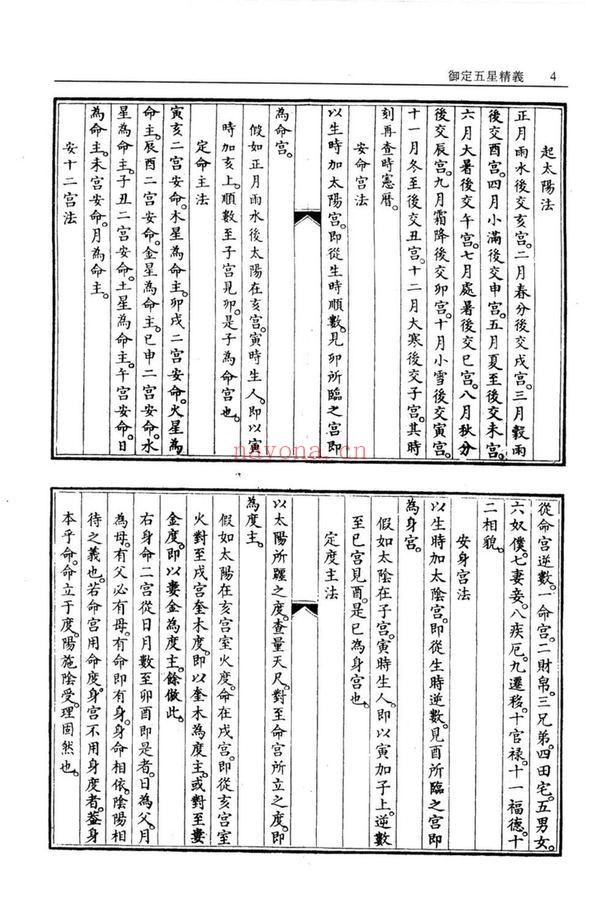 御定五星精義　4
起太陽法
正月雨水後交亥宫。二月春分後交戌宫。三月穀雨
後交酉宫。四月小滿後交申宫。五月夏至後交未宫。
六月大暑後交午宫。七月處暑後交巳宫。八月秋分
後交辰宫。九月霜降後交卯宫。十月小雪後交寅宫。
十一月冬至後交丑宫。十二月大寒後交子宫。其時
刻再查時憲曆。
安命宫法
以生時加太陽宫。即從生時順數。見卯所臨之宫即
為命宫。
假如正月雨水後太陽在亥宫。寅時生人。即以寅
時加亥上。順數至子宫見卯。是子為命宫也。
定命主法
寅亥二宫安命。木星為命主。卯戌二宫安命。火星為
命主。辰酉二宫安命。金星為命主。巳申二宫安命。水
星為命主。子丑二宫安命。土星為命主。午宫安命。日
為命主。未宫安命。月為命主。
安十二宫法
從命宫逆數。一命宫。二財帛。三兄弟。四田宅。五男女。
六奴僕。七妻妾。八疾厄。九遷移。十官禄。十一福德。十
二相貌。
安身宫法
以生時加太陰宫。即從生時逆數。見酉所臨之宫即
為身宫。
假如太陰在子宫。寅時生人。即以寅加子上。逆數
至巳宫見酉。是巳為身宫也。
定度主法
以太陽所躔之度。查量天尺。對至命宫所立之度。即
為度主。
假如太陽在亥宫室火度。命在戌宫。即從亥宫室
火對至戌宫奎木度。即以奎木為度主。或對至婁
金度。即以婁金為度主。餘倣此。
右身命二宫從日月數至卯酉即是者。日為父。月
為母。有父必有母。有命即有身。身命相依。陰陽相
待之義也。若命宫用命度。身宫不用身度者。蓋身
本乎命。命立于度。陽施陰受。理固然也。
nayona.cn